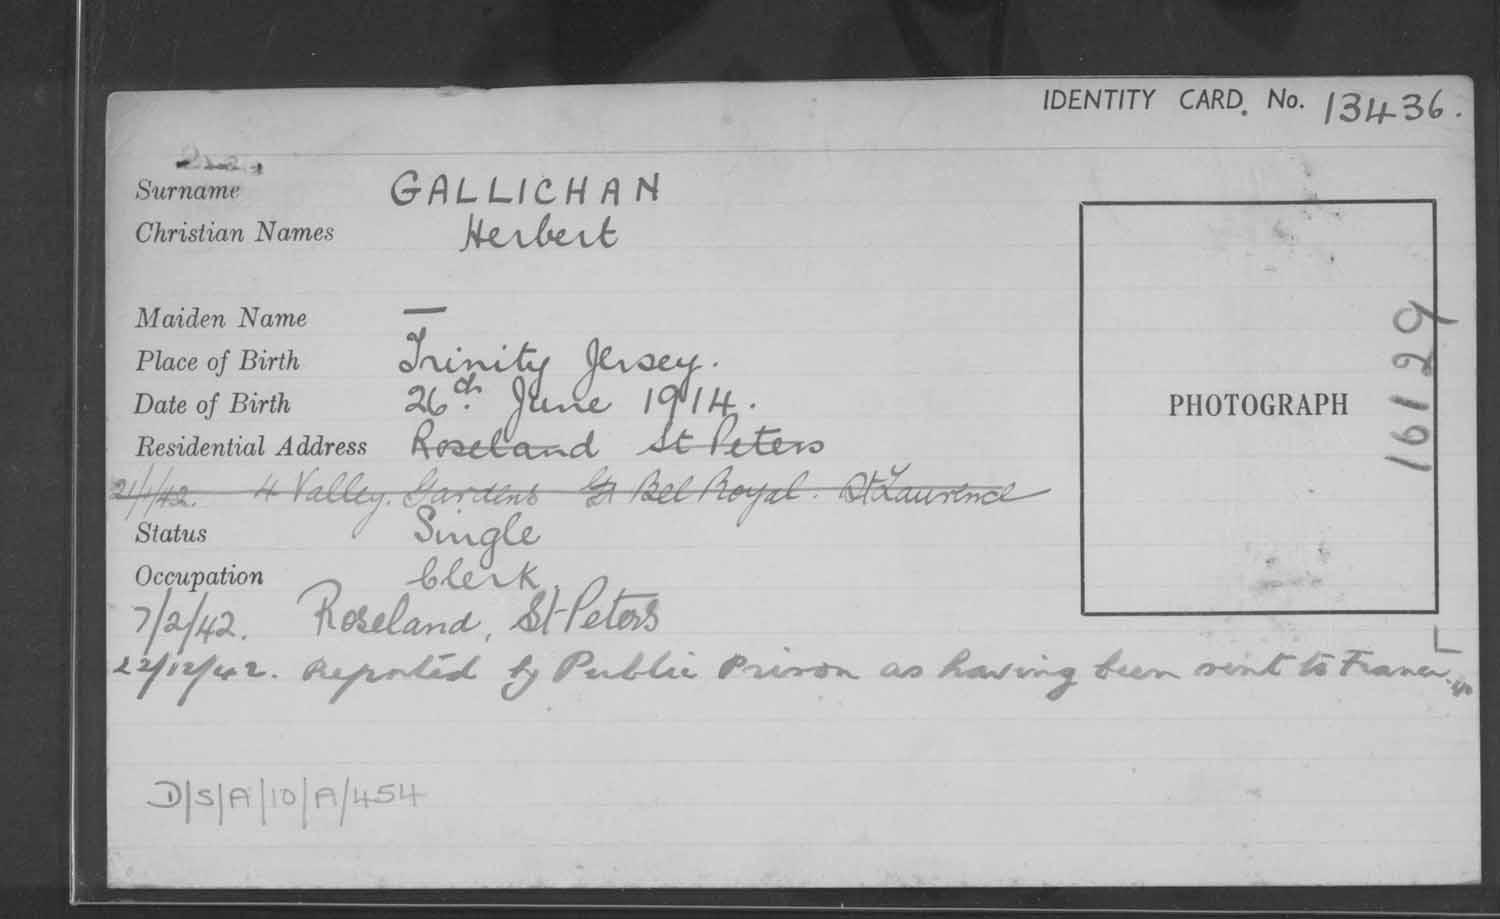 IDENTITY CARD. No. 13436.
Surname GALLICHAN
Christian Names Herbert
Maiden Name —
Place of Birth Trinity Jersey.
Date of Birth 26th June 1914.
Residential Address Roseland St Peters
21/1/42. 4 Valley. Gardens Bel Royal. St Lawrence
Status Single
Occupation Clerk
7/2/42. Roseland, St Peters
22/12/42. Reported by Public Prison as having been sent to France.
PHOTOGRAPH
16129
D/S/A/10/A/454